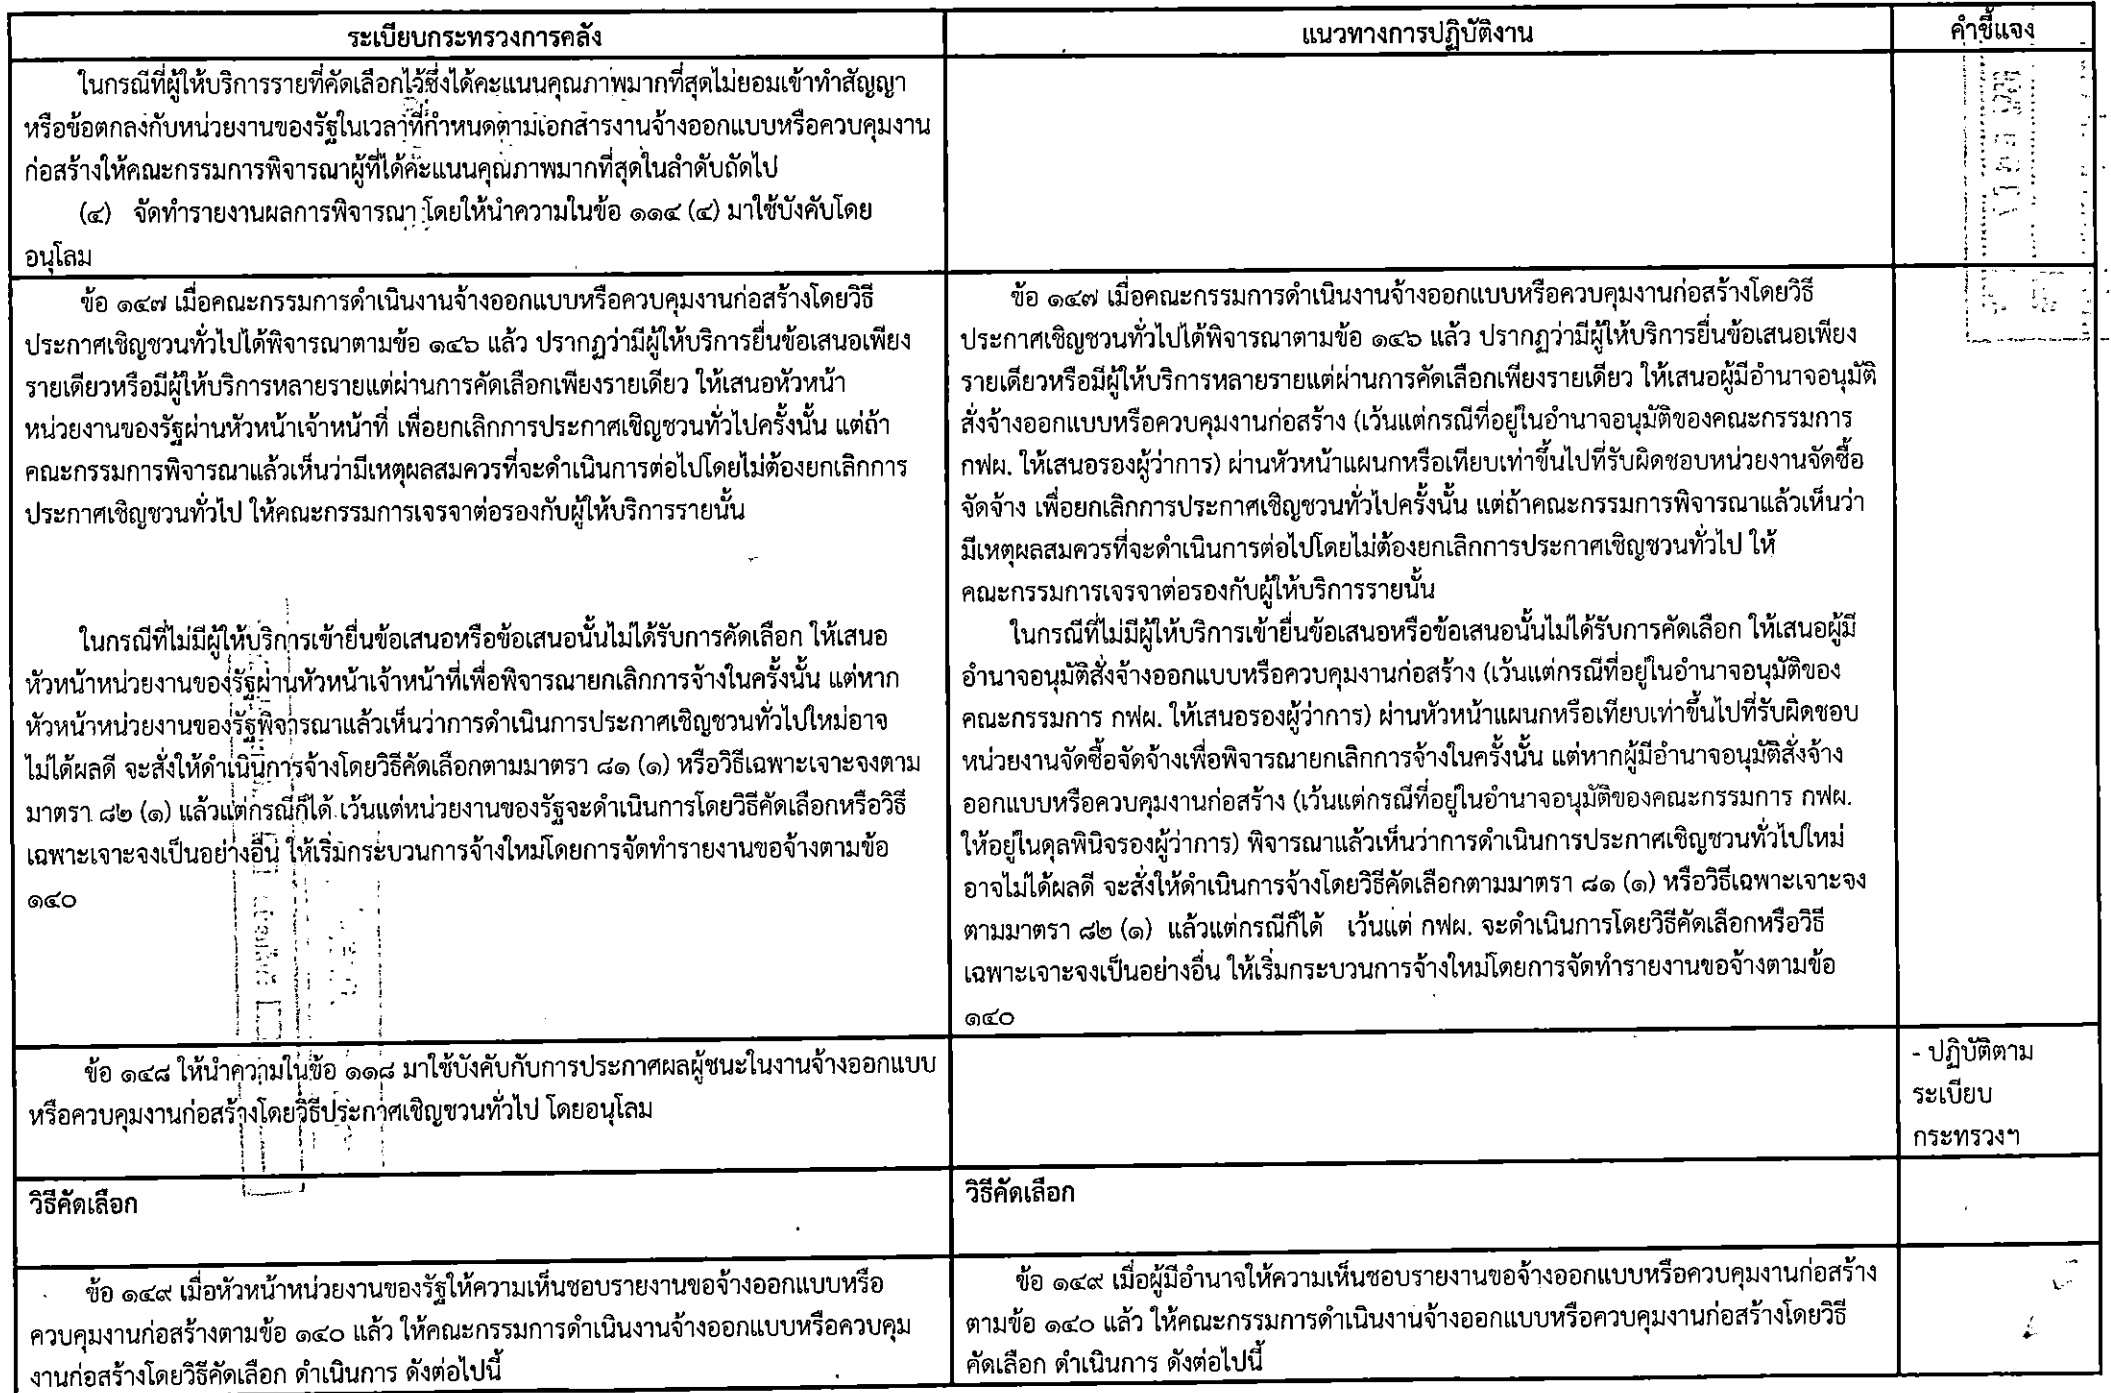 ระเบียบกระทรวงการคลัง
แนวทางการปฏิบัติงาน
คำชี้แจง
ในกรณีที่ผู้ให้บริการรายที่คัดเลือกไว้ซึ่งได้คะแนนคุณภาพมากที่สุดไม่ยอมเข้าทำสัญญา
หรือข้อตกลงกับหน่วยงานของรัฐในเวลาที่กำหนดตามเอกสารงานจ้างออกแบบหรือควบคุมงาน
ก่อสร้างให้คณะกรรมการพิจารณาผู้ที่ได้คะแนนคุณภาพมากที่สุดในลำดับถัดไป
(๔) จัดทำรายงานผลการพิจารณา โดยให้นำความในข้อ ๑๑๔ (๔) มาใช้บังคับโดย
อนุโลม
ข้อ ๑๔๗ เมื่อคณะกรรมการดำเนินงานจ้างออกแบบหรือควบคุมงานก่อสร้างโดยวิธี
ประกาศเชิญชวนทั่วไปได้พิจารณาตามข้อ ๑๔๖ แล้ว ปรากฏว่ามีผู้ให้บริการยื่นข้อเสนอเพียง
รายเดียวหรือมีผู้ให้บริการหลายรายแต่ผ่านการคัดเลือกเพียงรายเดียว ให้เสนอหัวหน้า
หน่วยงานของรัฐผ่านหัวหน้าเจ้าหน้าที่ เพื่อยกเลิกการประกาศเชิญชวนทั่วไปครั้งนั้น แต่ถ้า
คณะกรรมการพิจารณาแล้วเห็นว่ามีเหตุผลสมควรที่จะดำเนินการต่อไปโดยไม่ต้องยกเลิกการ
ประกาศเชิญชวนทั่วไป ให้คณะกรรมการเจรจาต่อรองกับผู้ให้บริการรายนั้น
ในกรณีที่ไม่มีผู้ให้บริการเข้ายื่นข้อเสนอหรือข้อเสนอนั้นไม่ได้รับการคัดเลือก ให้เสนอ
หัวหน้าหน่วยงานของรัฐผ่านหัวหน้าเจ้าหน้าที่เพื่อพิจารณายกเลิกการจ้างในครั้งนั้น แต่หาก
หัวหน้าหน่วยงานของรัฐพิจารณาแล้วเห็นว่าการดำเนินการประกาศเชิญชวนทั่วไปใหม่อาจ
ไม่ได้ผลดี จะสั่งให้ดำเนินการจ้างโดยวิธีคัดเลือกตามมาตรา ๘๑ (๑) หรือวิธีเฉพาะเจาะจงตาม
มาตรา ๘๒ (๑) แล้วแต่กรณีก็ได้ เว้นแต่หน่วยงานของรัฐจะดำเนินการโดยวิธีคัดเลือกหรือวิธี
เฉพาะเจาะจงเป็นอย่างอื่น ให้เริ่มกระบวนการจ้างใหม่โดยการจัดทำรายงานขอจ้างตามข้อ
๑๔๐
ข้อ ๑๔๗ เมื่อคณะกรรมการดำเนินงานจ้างออกแบบหรือควบคุมงานก่อสร้างโดยวิธี
ประกาศเชิญชวนทั่วไปได้พิจารณาตามข้อ ๑๔๖ แล้ว ปรากฏว่ามีผู้ให้บริการยื่นข้อเสนอเพียง
รายเดียวหรือมีผู้ให้บริการหลายรายแต่ผ่านการคัดเลือกเพียงรายเดียว ให้เสนอผู้มีอำนาจอนุมัติ
สั่งจ้างออกแบบหรือควบคุมงานก่อสร้าง (เว้นแต่กรณีที่อยู่ในอำนาจอนุมัติของคณะกรรมการ
กฟผ. ให้เสนอรองผู้ว่าการ) ผ่านหัวหน้าแผนกหรือเทียบเท่าขึ้นไปที่รับผิดชอบหน่วยงานจัดซื้อ
จัดจ้าง เพื่อยกเลิกการประกาศเชิญชวนทั่วไปครั้งนั้น แต่ถ้าคณะกรรมการพิจารณาแล้วเห็นว่า
มีเหตุผลสมควรที่จะดำเนินการต่อไปโดยไม่ต้องยกเลิกการประกาศเชิญชวนทั่วไป ให้
คณะกรรมการเจรจาต่อรองกับผู้ให้บริการรายนั้น
ในกรณีที่ไม่มีผู้ให้บริการเข้ายื่นข้อเสนอหรือข้อเสนอนั้นไม่ได้รับการคัดเลือก ให้เสนอผู้มี
อำนาจอนุมัติสั่งจ้างออกแบบหรือควบคุมงานก่อสร้าง (เว้นแต่กรณีที่อยู่ในอำนาจอนุมัติของ
คณะกรรมการ กฟผ. ให้เสนอรองผู้ว่าการ) ผ่านหัวหน้าแผนกหรือเทียบเท่าขึ้นไปที่รับผิดชอบ
หน่วยงานจัดซื้อจัดจ้างเพื่อพิจารณายกเลิกการจ้างในครั้งนั้น แต่หากผู้มีอำนาจอนุมัติสั่งจ้าง
ออกแบบหรือควบคุมงานก่อสร้าง (เว้นแต่กรณีที่อยู่ในอำนาจอนุมัติของคณะกรรมการ กฟผ.
ให้อยู่ในดุลพินิจรองผู้ว่าการ) พิจารณาแล้วเห็นว่าการดำเนินการประกาศเชิญชวนทั่วไปใหม่
อาจไม่ได้ผลดี จะสั่งให้ดำเนินการจ้างโดยวิธีคัดเลือกตามมาตรา ๘๑ (๑) หรือวิธีเฉพาะเจาะจง
ตามมาตรา ๘๒ (๑) แล้วแต่กรณีก็ได้ เว้นแต่ กฟผ. จะดำเนินการโดยวิธีคัดเลือกหรือวิธี
เฉพาะเจาะจงเป็นอย่างอื่น ให้เริ่มกระบวนการจ้างใหม่โดยการจัดทำรายงานขอจ้างตามข้อ
๑๔๐
ข้อ ๑๔๘ ให้นำความในข้อ ๑๑๘ มาใช้บังคับกับการประกาศผลผู้ชนะในงานจ้างออกแบบ
หรือควบคุมงานก่อสร้างโดยวิธีประกาศเชิญชวนทั่วไป โดยอนุโลม
- ปฏิบัติตาม
ระเบียบ
กระทรวงฯ
วิธีคัดเลือก
วิธีคัดเลือก
ข้อ ๑๔๙ เมื่อหัวหน้าหน่วยงานของรัฐให้ความเห็นชอบรายงานขอจ้างออกแบบหรือ
ควบคุมงานก่อสร้างตามข้อ ๑๔๐ แล้ว ให้คณะกรรมการดำเนินงานจ้างออกแบบหรือควบคุม
งานก่อสร้างโดยวิธีคัดเลือก ดำเนินการ ดังต่อไปนี้
ข้อ ๑๔๙ เมื่อผู้มีอำนาจให้ความเห็นชอบรายงานขอจ้างออกแบบหรือควบคุมงานก่อสร้าง
ตามข้อ ๑๔๐ แล้ว ให้คณะกรรมการดำเนินงานจ้างออกแบบหรือควบคุมงานก่อสร้างโดยวิธี
คัดเลือก ดำเนินการ ดังต่อไปนี้